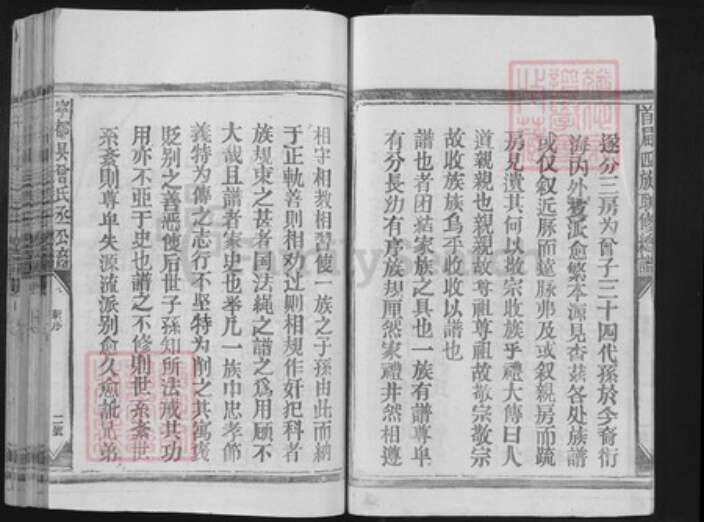 遂分三房为曾子三十四代孫於今裔衍
海内外裁泒愈繁本源見杳茲各处族譜
或仅叙近脉而遠脉弗及或叙親房而疏
房見遺其何以敬宗收族乎禮大傳曰人
道親親也親親故尊祖尊祖故敬宗敬宗
故收族族爲乎收收以譜也
譜也者团结家族之具也一族有譜尊卑
有分長幼有序族規厘然家禮井然相遵
相守相教相習使一族之子孫由此而納
于正軌善則相劝过則相規作奸犯科者
族規束之甚者国法繩之譜之爲用顾不
大哉且譜者家史也举凡一族中忠孝節
義特为傳之志行不坚特为削之其寓褒
贬别之善恶使后世子孫知所法戒其功
用亦不亚于史也譜之不修則世系紊世
系紊則尊卑失源流派别愈久愈訛兄弟
寧都县曾氏丞公譜
二